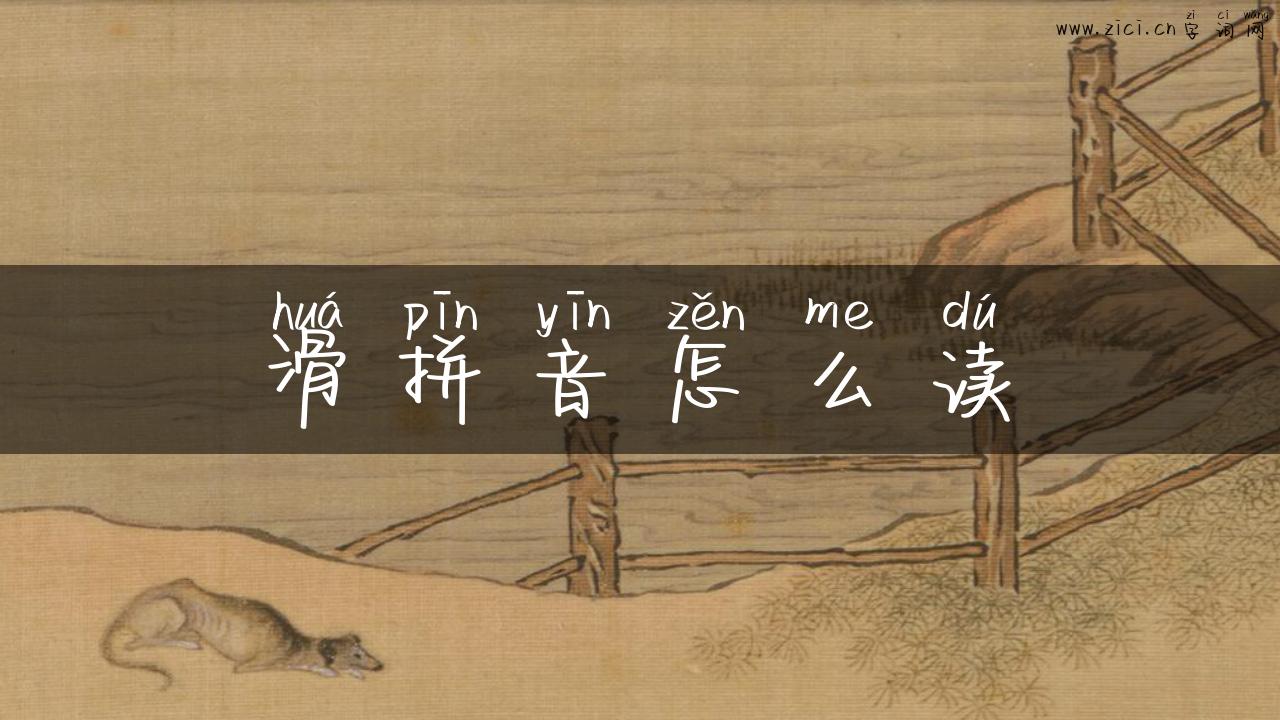 zi ci wang
www.zici.cn 字词网
huá pīn yīn zěn me dú
滑拼音怎么读